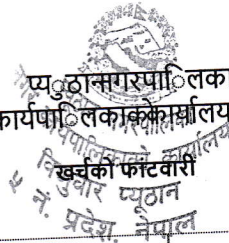 प्यूठान नगरपालिका
कार्यपालिकाको कार्यालय
खर्चको फाँटवारी
विजुवार प्यूठान
५ नं. प्रदेश, नेपाल